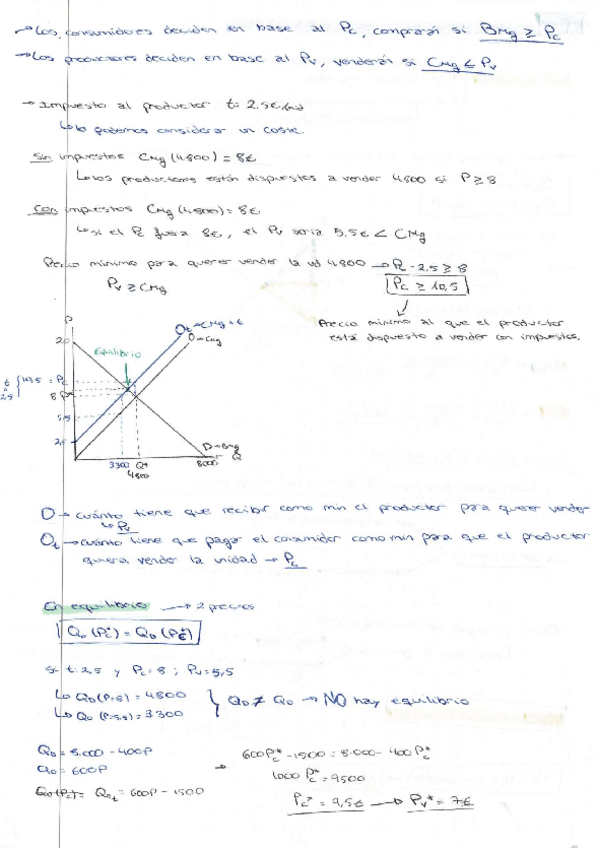 → Los consumidores deciden en base al Pc, comprarán si BMg ≥ Pc
→ Los productores deciden en base al Pv, venderán si CMg ≤ Pv
→ Impuesto al productor t = 2.5€/ud
↳ lo podemos considerar un coste.
Sin impuestos CMg (4.800) = 8€
↳ los productores están dispuestos a vender 4800 si P ≥ 8
Con impuestos CMg (4.800) = 8€
↳ si el Pc fuera 8€, el Pv sería 5.5€ < CMg
Precio mínimo para querer vender la ud 4800 → Pc - 2.5 ≥ 8
Pv ≥ CMg
Pc ≥ 10,5
Precio mínimo al que el productor
está dispuesto a vender con impuestos.
P
Ot → CMg + t
20
O → CMg
Equilibrio
t = 2.5
10.5 = Pc
8 P*
5,5
2,5
D → BMg
3300 Q* 8000 Q
4800
O → cuánto tiene que recibir como min el productor para querer vender
↳ Pv
Ot → cuánto tiene que pagar el consumidor como min para que el productor
quiera vender la unidad → Pc
En equilibrio → 2 precios
Si t = 2,5 y Pc = 8 ; Pv = 5,5
↳ QD (P=8) = 4800
↳ Qo (P=5.5) = 3300
QD ≠ Qo → NO hay equilibrio
QD = 8.000 - 400P
Qo = 600P
Qo(Pc) = Qot = 600P - 1500
→ 600Pc* - 1500 = 8.000 - 400Pc*
1000 Pc* = 9500
Pc* = 9,5€ → Pv* = 7€